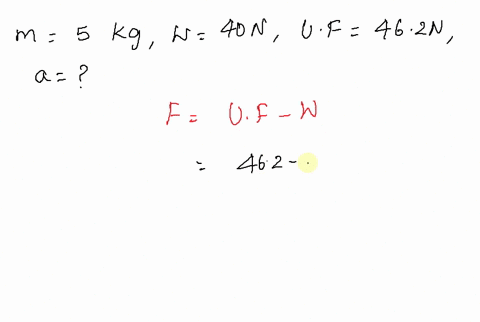 m = 5 kg, W = 40N, U.F = 46.2N,
a = ?
F = U.F - W
= 46.2 -